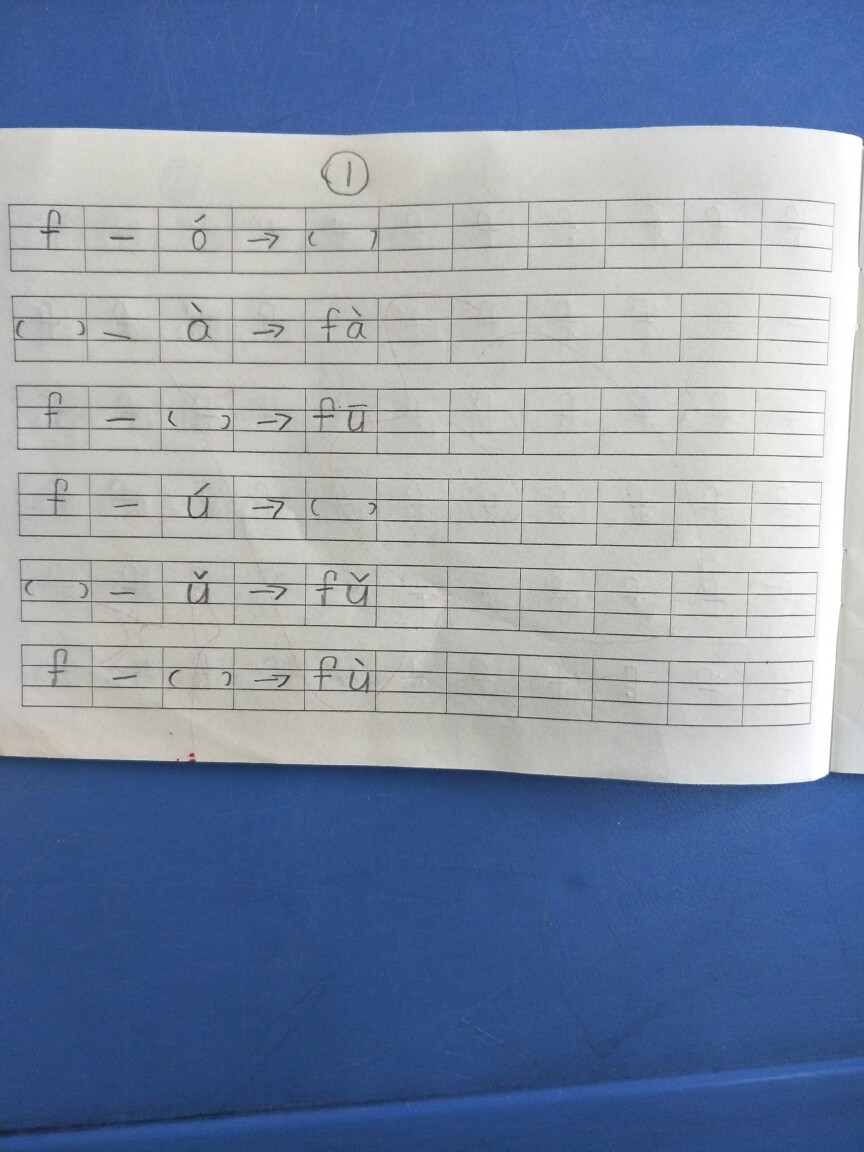 ①
f — ó → ( )
( ) — à → fà
f — ( ) → fū
f — ú → ( )
( ) — ǔ → fǔ
f — ( ) → fù